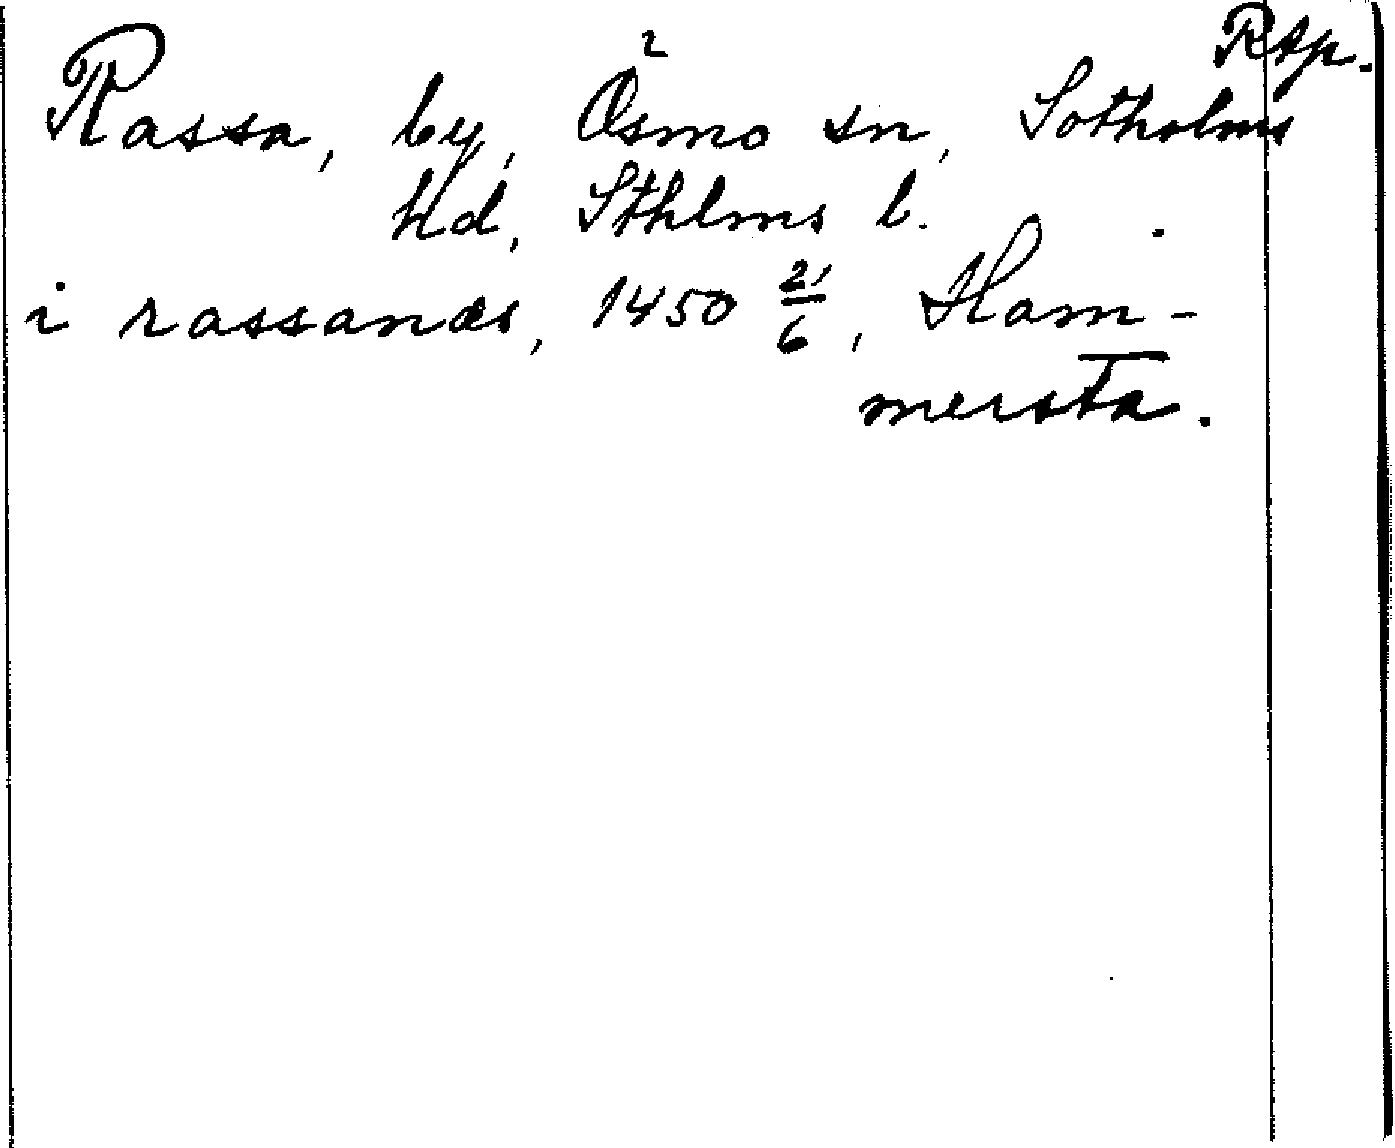 Rap.
Rassa, by, Ösmo sn, Sotholms
hd, Sthlms l.
i rassanæs, 1450 21/6, Ham-
mersta.